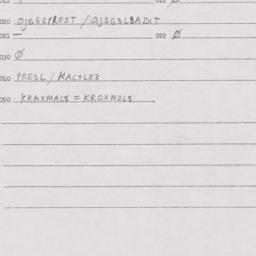 020 OJSG3PROST / OJSG3LBADIT
021 — 022 Ø
030 Ø
060 PRESL / KAC4LK3
050 KRAXMALE = KROXMOLE